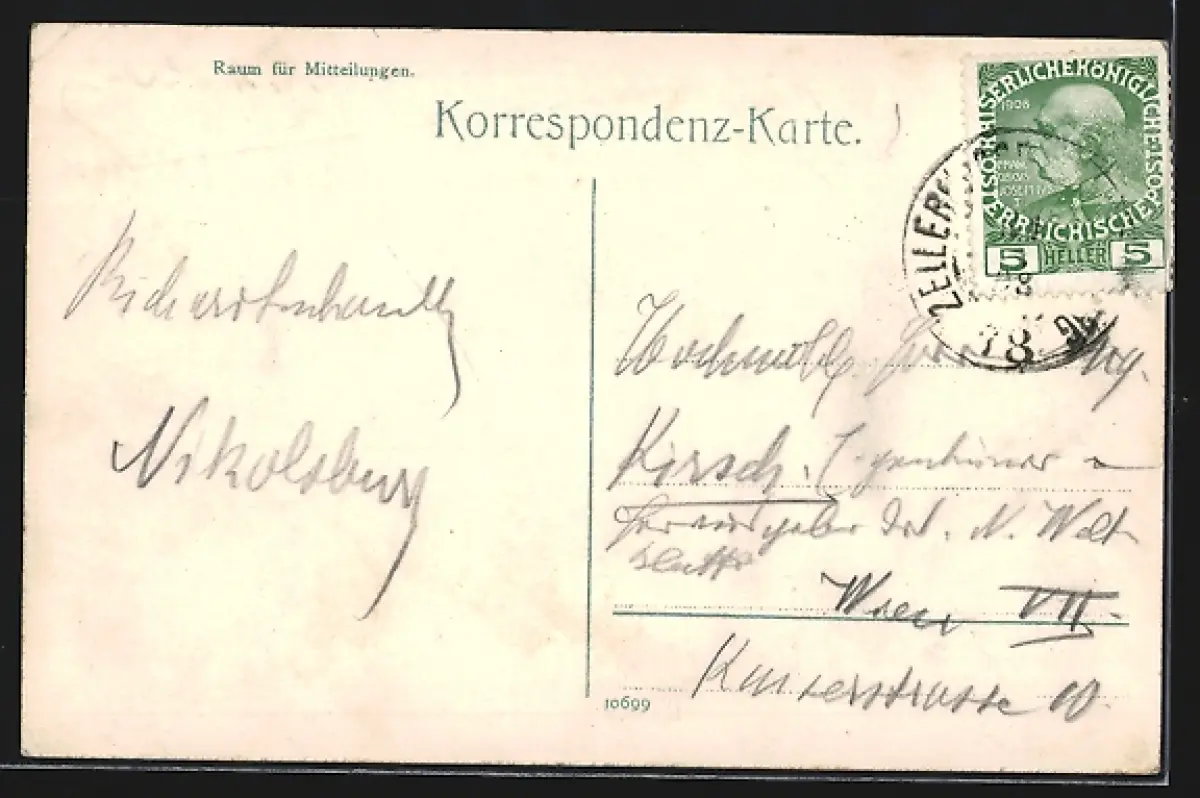 Raum für Mitteilungen.
Korrespondenz-Karte.
KAISERLICHE KÖNIGLICHE ÖSTERREICHISCHE POST
1908
FRANZ
JOSEPH I
5 HELLER 5
ZELLER
18
Nikolsburg
Hochwohlg. Herrn
Kirsch, Eigenthümer u
Herausgeber des N. Welt
blatts
Wien VII.
Kaiserstrasse 10.
10699